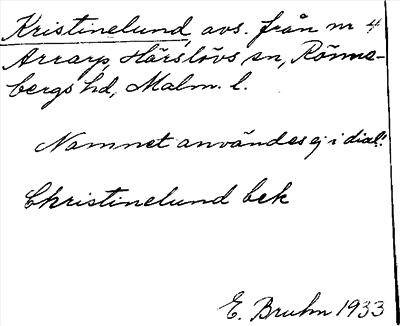 Kristinelund, avs. från nr 4
Arrarp, Härslövs sn, Rönne-
bergs hd, Malm. l.
Namnet användes ej i dial!
Christinelund bek
E. Bruhn 1933